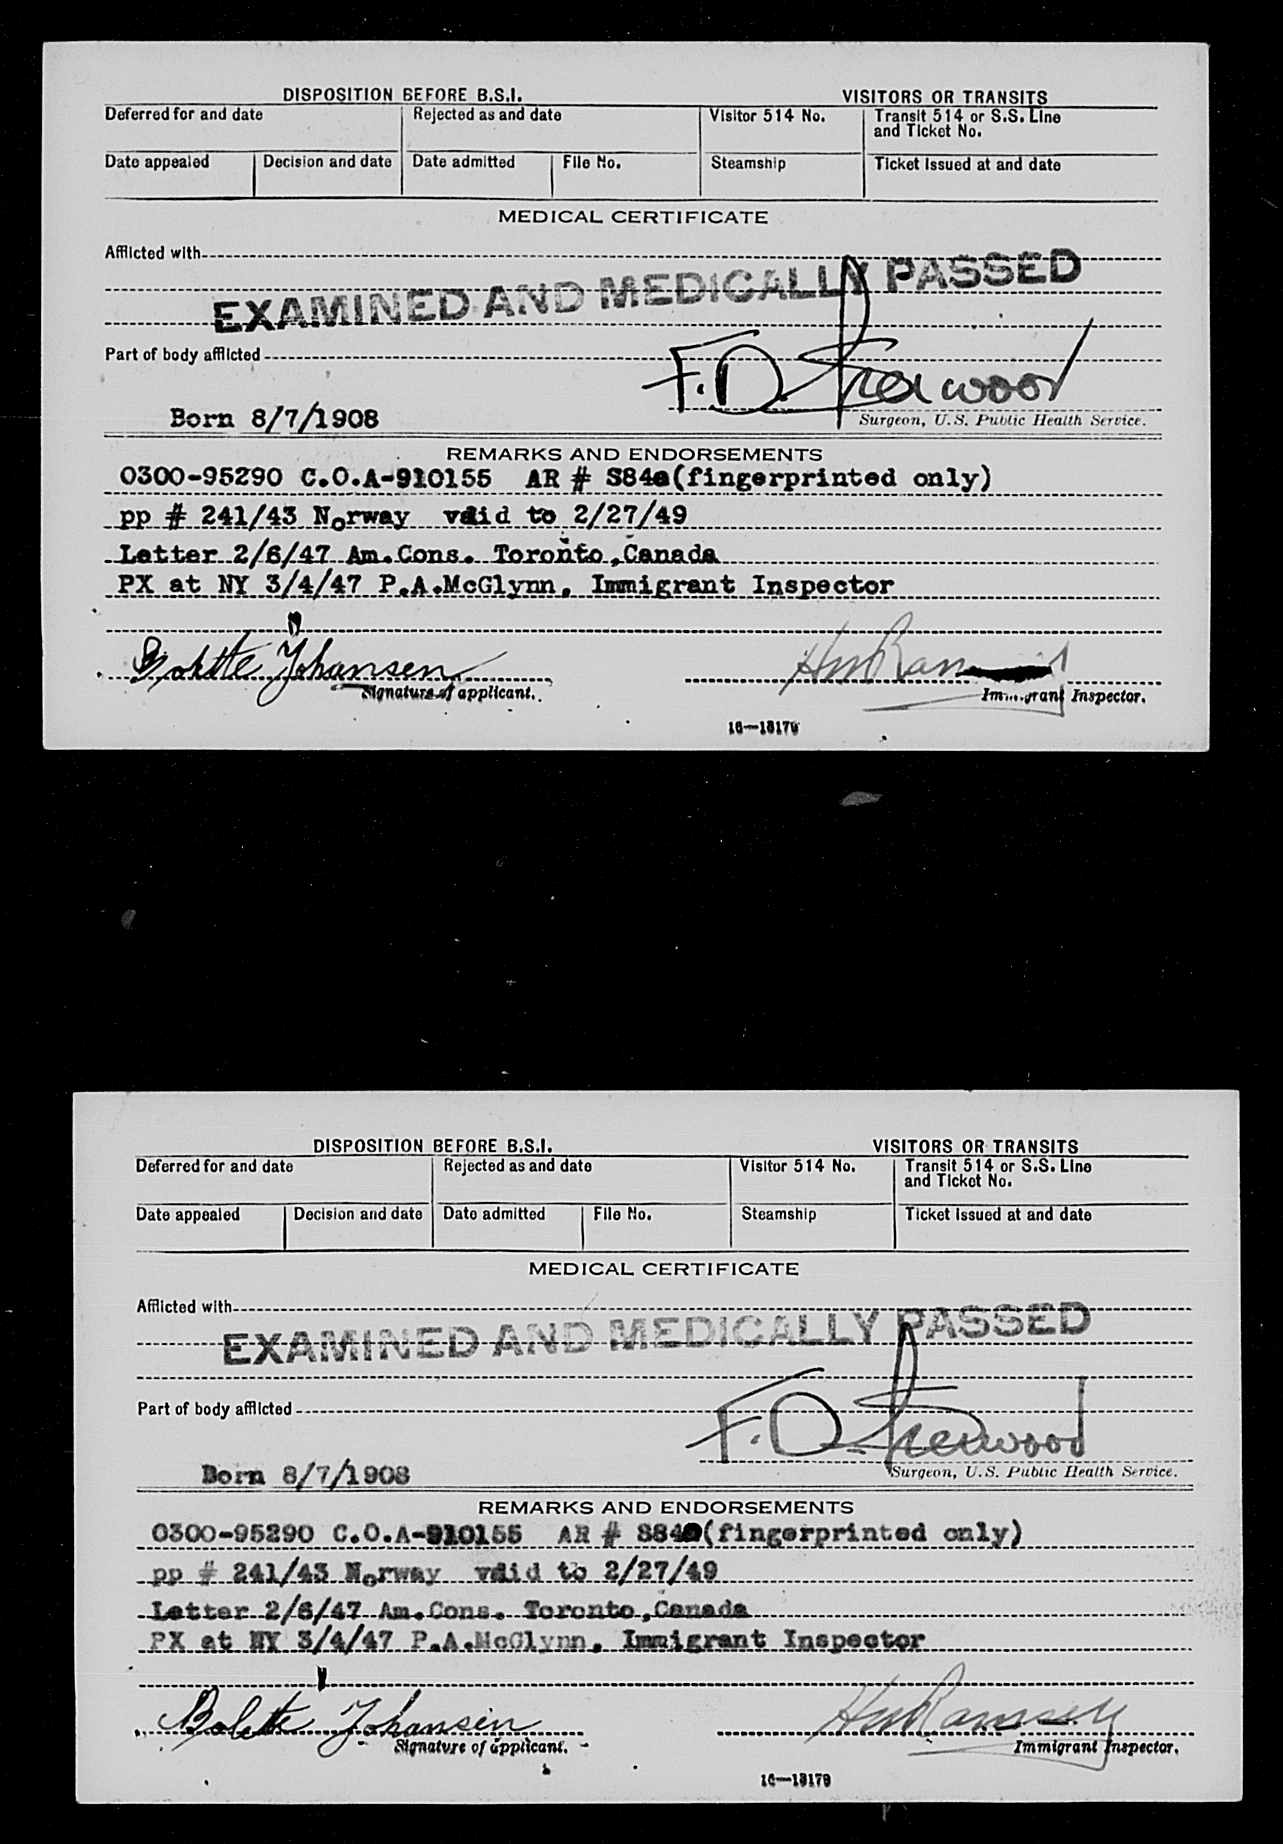 DISPOSITION BEFORE B.S.I. VISITORS OR TRANSITS
Deferred for and date Rejected as and date Visitor 514 No. Transit 514 or S.S. Line and Ticket No.
Date appealed Decision and date Date admitted File No. Steamship Ticket issued at and date
MEDICAL CERTIFICATE
Afflicted with
EXAMINED AND MEDICALLY PASSED
Part of body afflicted
F. D. Sherwood
Born 8/7/1908
Surgeon, U.S. Public Health Service.
REMARKS AND ENDORSEMENTS
0300-95290 C.O.A-910155 AR # (fingerprinted only)
pp # 241/43 Norway valid to 2/27/49
Letter 2/6/47 Am.Cons. Toronto,Canada
PX at NY 3/4/47 P.A.McGlynn, Immigrant Inspector
Bolette Johansen
Signature of applicant. Immigrant Inspector.
16—13179
DISPOSITION BEFORE B.S.I. VISITORS OR TRANSITS
Deferred for and date Rejected as and date Visitor 514 No. Transit 514 or S.S. Line and Ticket No.
Date appealed Decision and date Date admitted File No. Steamship Ticket issued at and date
MEDICAL CERTIFICATE
Afflicted with
EXAMINED AND MEDICALLY PASSED
Part of body afflicted
F. D. Sherwood
Born 8/7/1908
Surgeon, U.S. Public Health Service.
REMARKS AND ENDORSEMENTS
0300-95290 C.O.A-910155 AR # (fingerprinted only)
pp # 241/43 Norway valid to 2/27/49
Letter 2/6/47 Am.Cons. Toronto,Canada
PX at NY 3/4/47 P.A.McGlynn, Immigrant Inspector
Bolette Johansen Ramsey
Signature of applicant. Immigrant Inspector.
16—13179